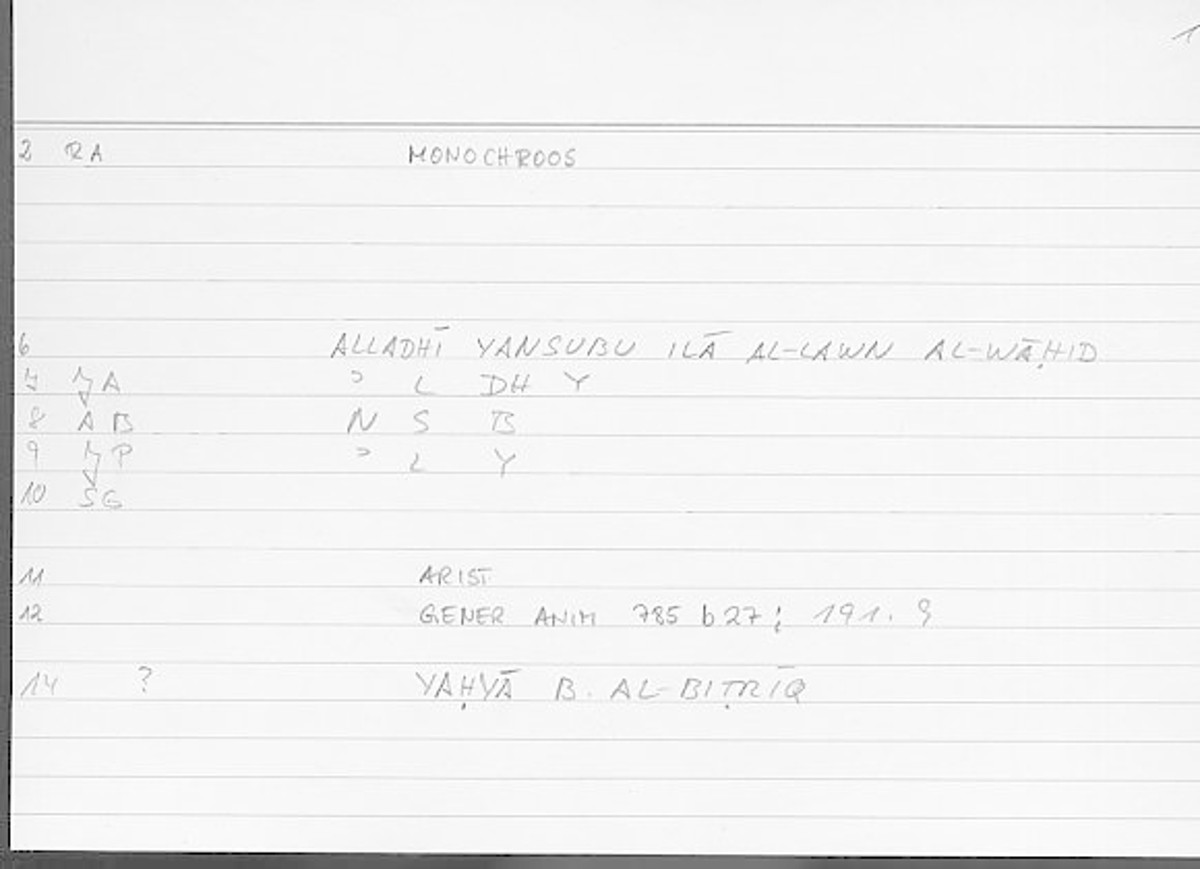 1
2 RA MONOCHROOS
6 ALLADHĪ YANSUBU ILĀ AL-LAWN AL-WĀḤID
7 A ʾ L DH Y
8 AB N S B
9 P ʾ L Y
10 SG
11 ARIST
12 GENER ANIM 785 b 27; 191. 9
14 ? YAḤYĀ B. AL-BIṬRĪQ